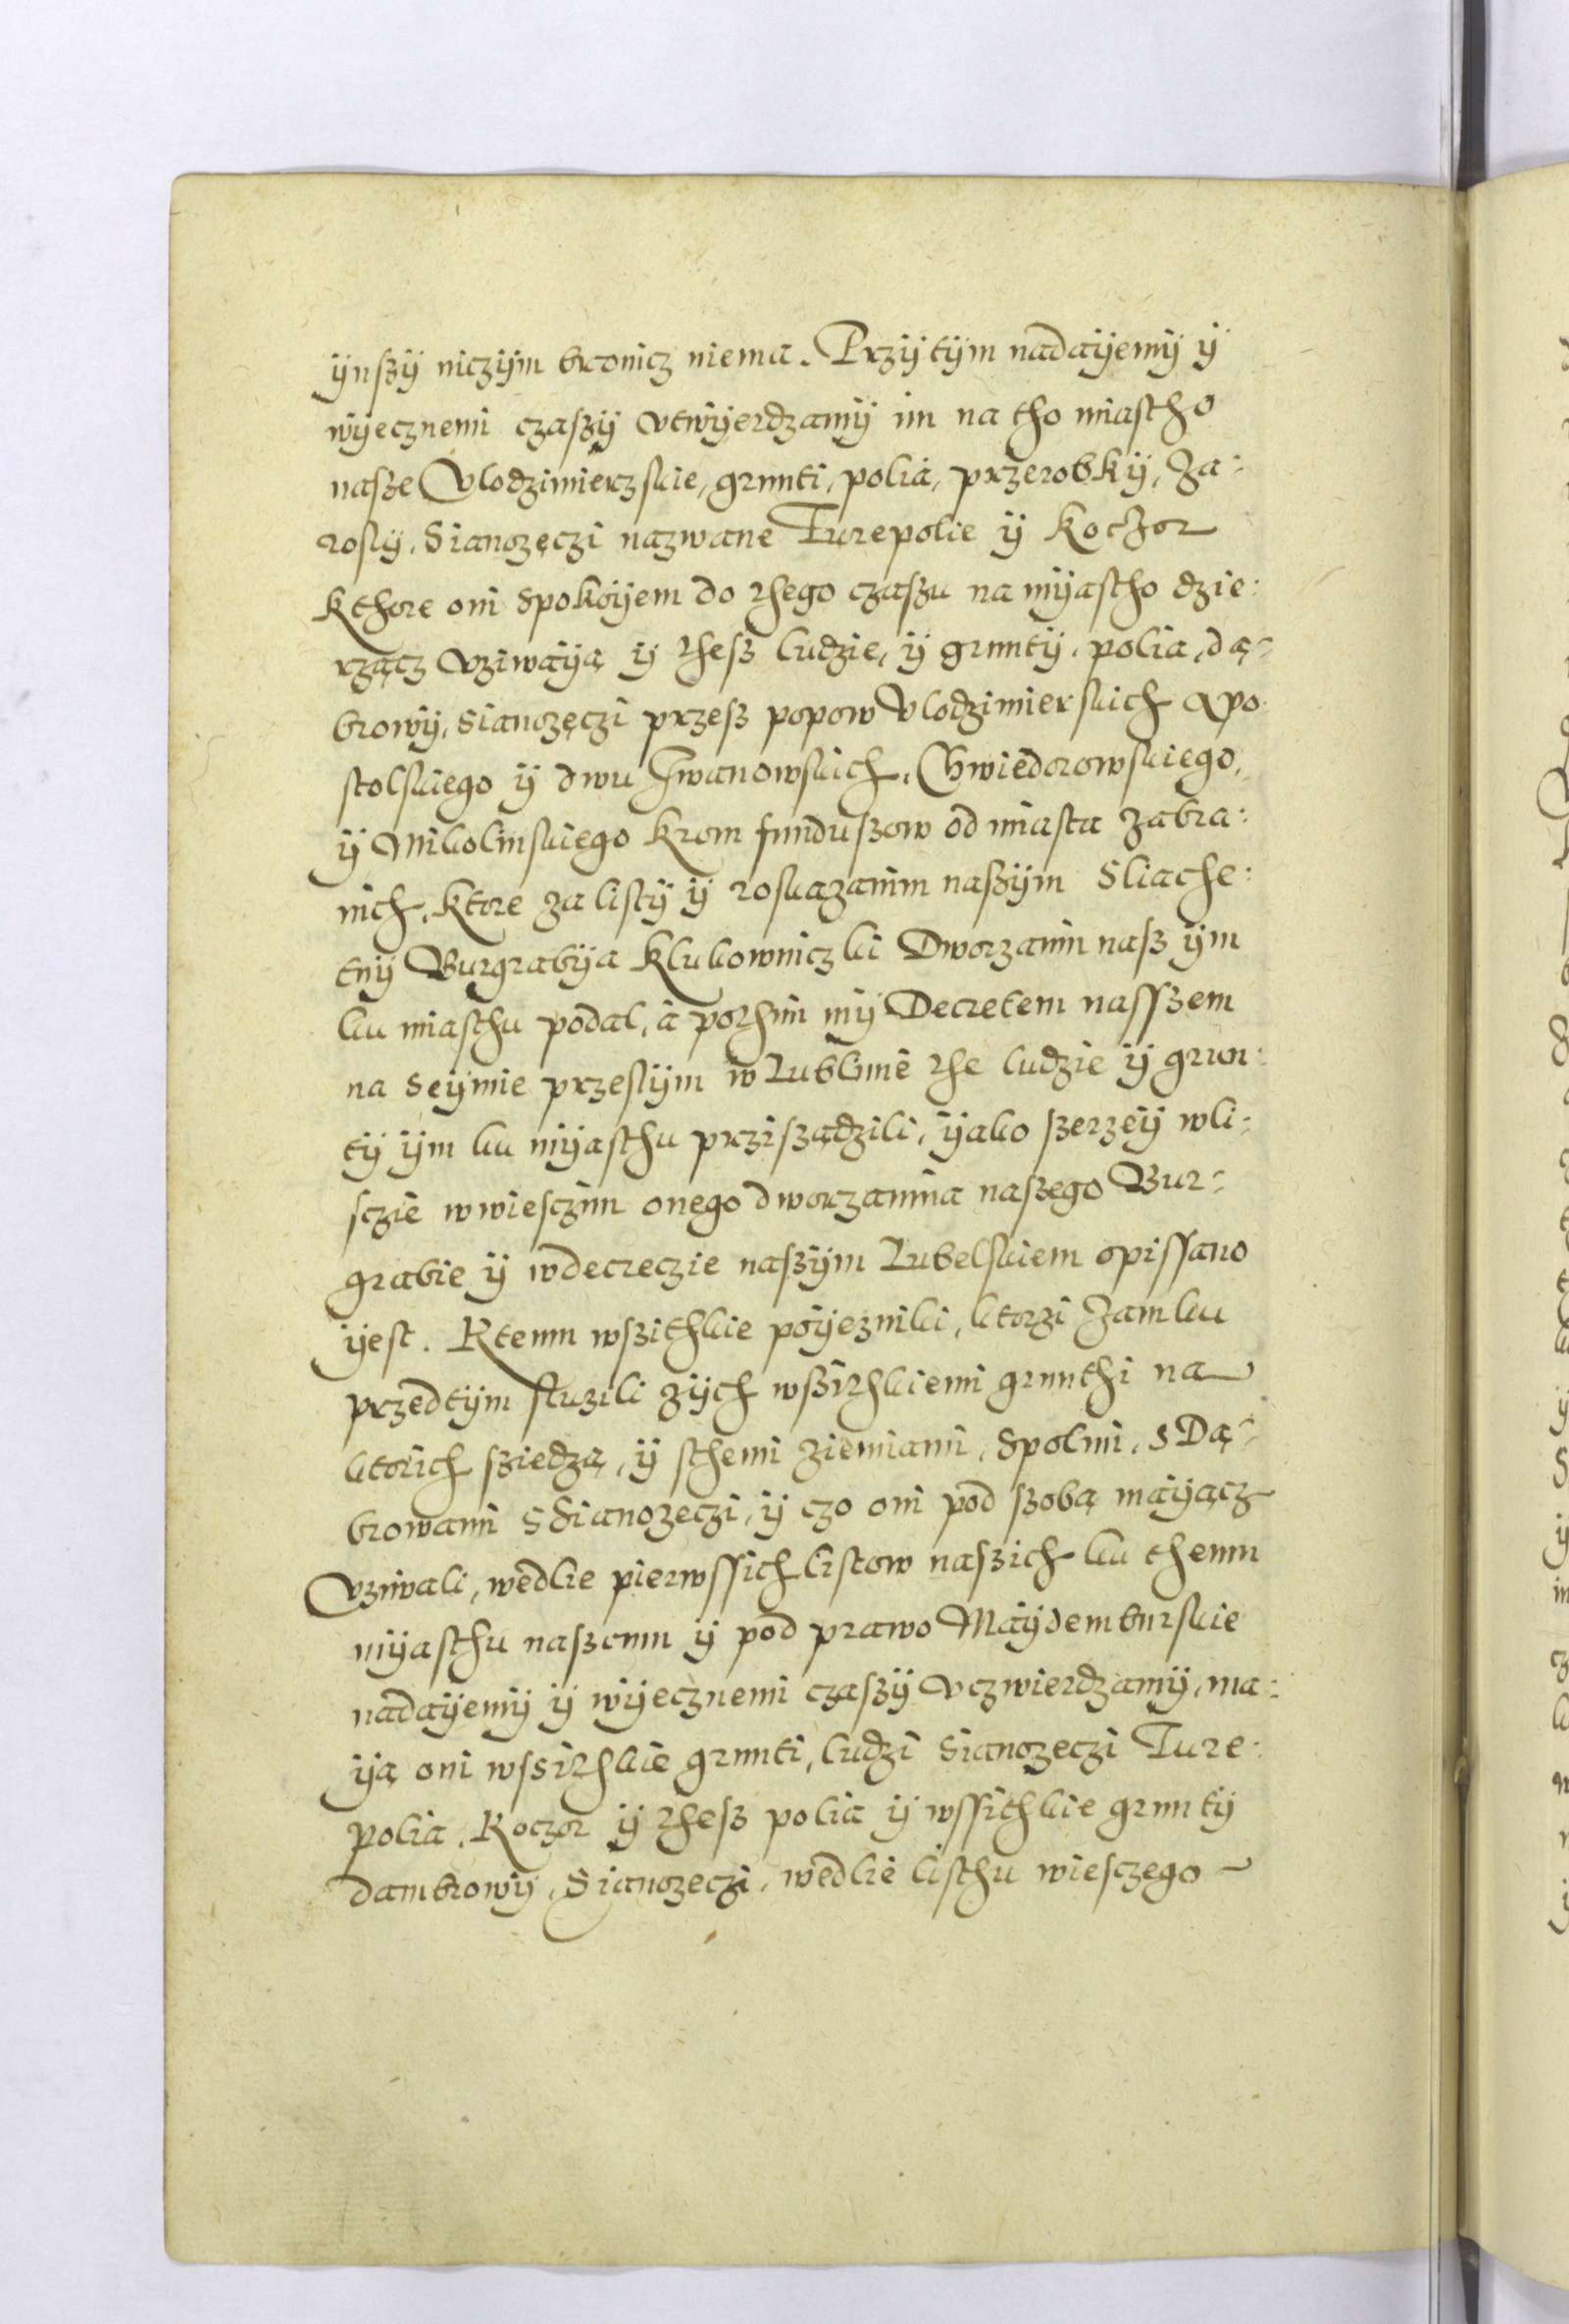 ÿnßÿ niczÿm bronicz niema. Przÿtÿm nadaÿemÿ ÿ
wÿecznemi czaßÿ vtwÿerdzamÿ im na tho miastho
naße Vlodzimierzskie, grunti, polia, przerobkÿ, Za:
roslÿ, Sianozęczi nazwane Turepolie ÿ Koczor
kthore oni spokoÿem do thego czaßu na mÿastho dzie:
rzącz vziwaÿą ÿ theß ludzie, ÿ gruntÿ, polia, dą:
browÿ, sianozęczi przeß popow Vlodzimierskich Apo
stolskiego ÿ dwu Iwanowskich, Chwiedorowskiego,
ÿ Mikolinskiego krom funduszow od miasta zabra:
nich, ktore za listÿ ÿ roskazanim naßÿm Sliache:
tnÿ Burgrabÿa Klukowniczki Dworzanin naß ÿm
ku miasthu podal, a pothim mÿ Decretem nasszem
na seÿmie przeslÿm w Lublinie the ludzie ÿ grun:
tÿ ÿm ku mÿasthu prziszadzili, ÿako szerzeÿ w li:
sczie wwiesczim onego dworzanina naszego Bur:
grabie ÿ w decreczie naszÿm Lubelskiem opissano
ÿest. Ktemu wszithkie poÿeznikі, ktorzi Zamku
przedtÿm sluzili zÿch wszithkiemi grunthi na
ktorich sziedzą, ÿ sthemi ziemiami, spolmi, s Dą:
browami s Sianozeczi, ÿ czo oni pod szobą maÿącz
vziwali, wedlie pierwssich listow naszich ku themu
mÿasthu naszemu ÿ pod prawo Maÿdemburskie
nadaÿemÿ ÿ wÿecznemi czaszÿ vczwierdzamÿ, ma:
ÿą oni wssithkie grunti, ludzi sianozeczi Ture:
polia, Koczor ÿ theß polia ÿ wssithkie gruntÿ
dambrowÿ, Sianozeczi, wedlie listhu wiesczego